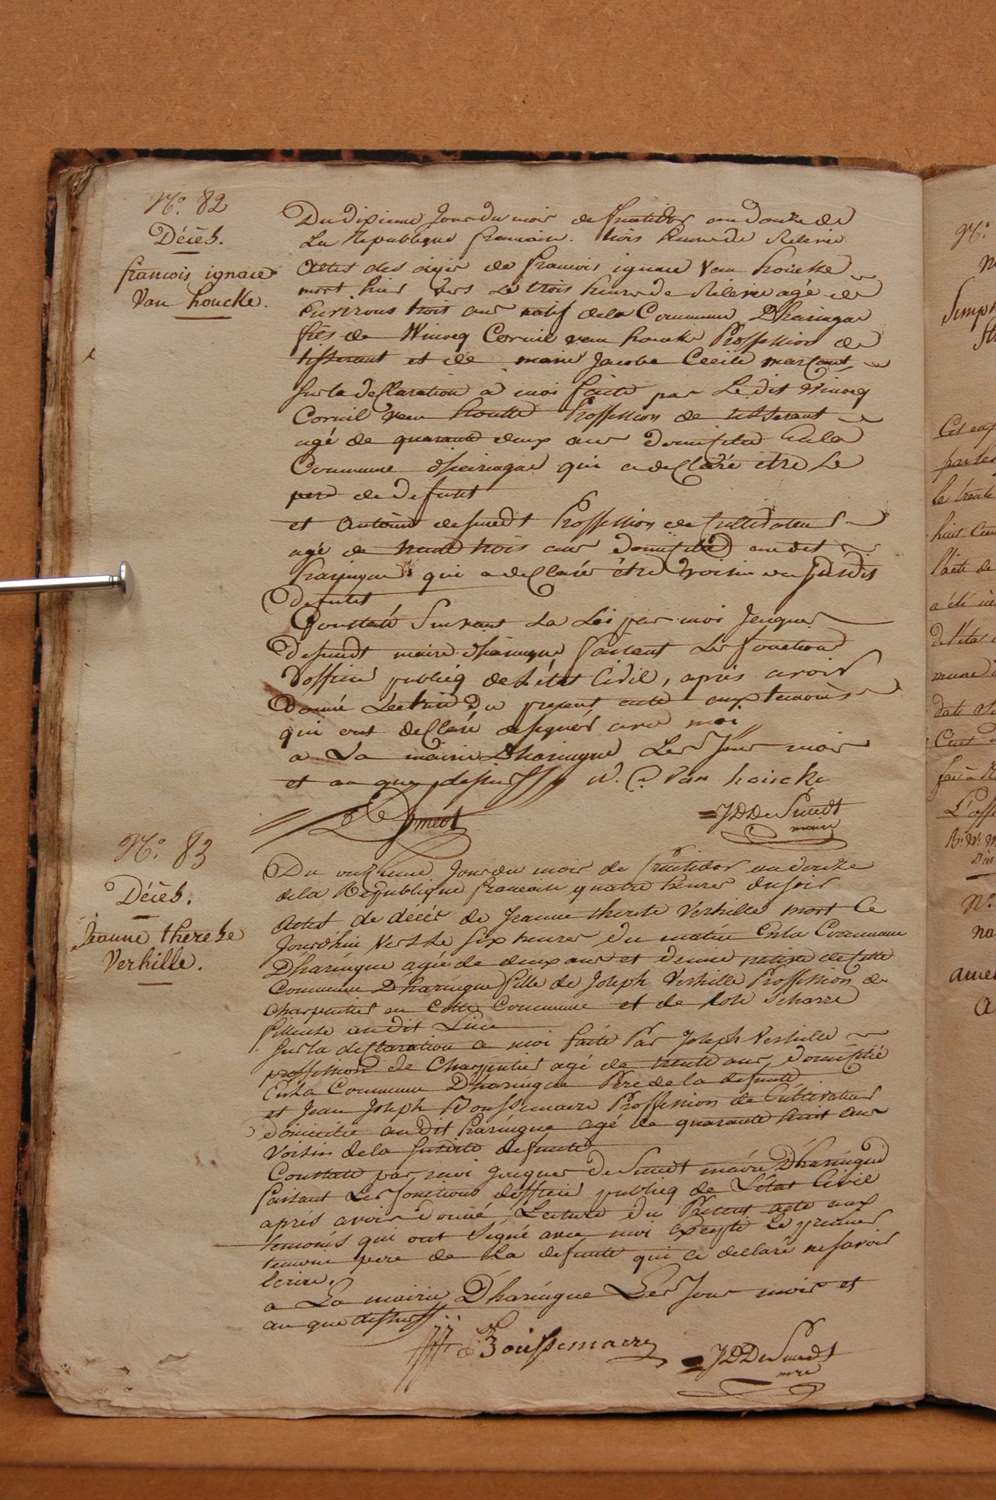 N.º 82
Décès.
francois ignace
Van houcke.
Du dixieme Jour du mois de fructidor an douze de
La Republique francaise. trois heure de Relevée
Actes des décés de francois ignace Van houcke
mort hier vers Le trois heure de Relevée agé de
Environs trois ans natif de la Commune Dharingue
fils de Winocq Cornil van houcke Proffession de
tisserant et de marie Jacoba Cecile
Sur la declaration a moi faite par Le dit Winocq
Cornil van houcke Proffession de tisserant
agé de quarante deux ans domicilié En la
Commune dharingue qui a declaré être Le
pere de defunt
et Antoine desmedt Proffession de Cultivateur
agé de trente trois ans domicilié audit
haringue qui a declaré être Voisin du Susdit
defunt
Constaté Suivant La Loi par moi Jacques
desmedt maire dharingue faisant Les fonctions
d'officié publicq de L'état Civil, après avoir
donné Lecture du present acte aux temoins
qui ont declaré designer avec moi
a La mairie Dharingue Les Jour mois
et an que dessus W. C. Van houcke
Dsmedt
JDDeSmedt
maire
N.º 83
Décès.
Jeanne therese
Verhille.
Du onzieme Jour du mois de fructidor an douze
de la Republique francaise quatre heures du soir
Actes de décés de Jeanne therese Verhille mort Ce
Jourdhui Vers Le six heures du matin En la Commune
Dharingue agée de deux ans et demie native de Cette
Commune Dharingue fille de Joseph Verhille Proffession de
Charpentier en Cette Commune et de Rose
fileuse au dit Lieu
Sur la declaration a moi faite Par Joseph Verhille
proffession de Charpentier agé de trente ans domicilié
En La Commune Dharingue Père de la defunte
et Jean Joseph Boussemaere Proffession de Cultivateur
domicilié audit haringue agé de quarante huit ans
Voisin de la Susdite defunte
Constaté par moi Jacques deSmedt maire Dharingue
faisant Les fonctions d'officié publicq de L'état Civil
après avoir donné Lecture du Present acte aux
temoins qui ont Signé avec moi Excepté Le premier
temoin pere de La defunte qui a declaré ne savoir
Ecrire.
a La mairie Dharingue Les Jour mois et
an que dessus
Boussemaere
JDDeSmedt
mre